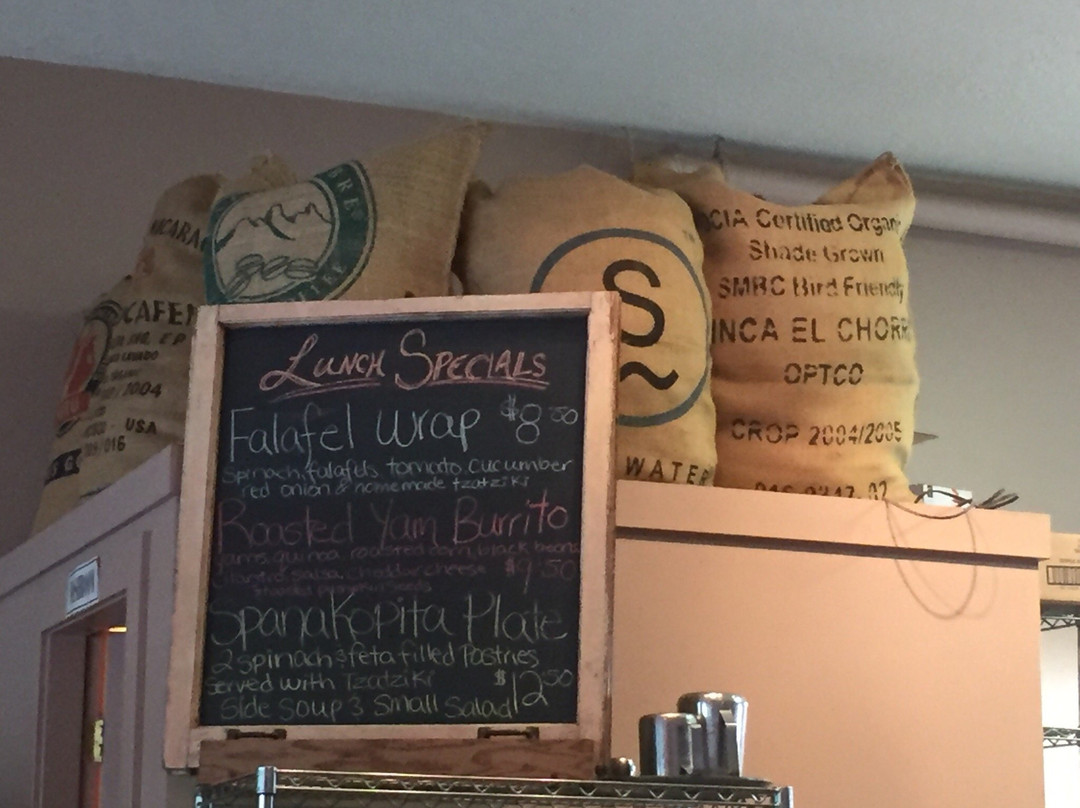 LUNCH SPECIALS
Falafel Wrap $8.50
Spinach, falafels, tomato, cucumber
red onion & homemade tzatziki
Roasted Yam Burrito
yams, quinoa, roasted corn, black beans
cilantro, salsa, cheddar cheese $9.50
Spanakopita Plate
2 spinach & feta filled Pastries
Served with Tzadziki $12.50
Side Soup & Small Salad
NICARA
CAFE
2004
USA
016
BRE
LLEY
S
~
WATER
CIA Certified Organ
Shade Grown
SMBC Bird Friendly
INCA EL CHORR
OPTCO
CROP 2004/2005